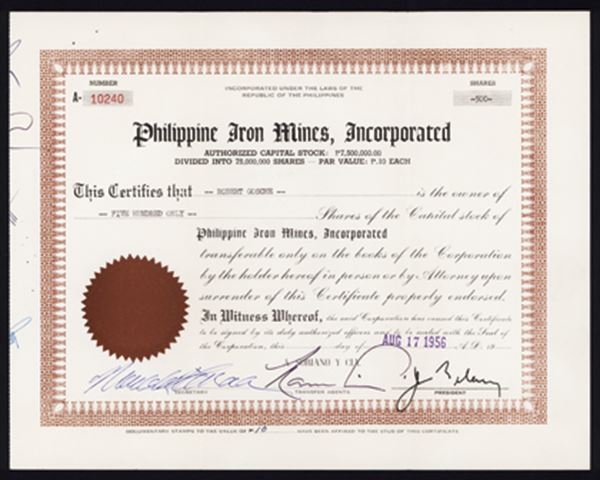 NUMBER
A- 10240
INCORPORATED UNDER THE LAWS OF THE
REPUBLIC OF THE PHILIPPINES
SHARES
-500-
Philippine Iron Mines, Incorporated
AUTHORIZED CAPITAL STOCK: ₱7,500,000.00
DIVIDED INTO 75,000,000 SHARES — PAR VALUE: ₱.10 EACH
This Certifies that -- ROBERT -- is the owner of
-- FIVE HUNDRED ONLY -- Shares of the Capital stock of
Philippine Iron Mines, Incorporated
transferable only on the books of the Corporation
by the holder hereof in person or by Attorney upon
surrender of this Certificate properly endorsed.
In Witness Whereof, the said Corporation has caused this Certificate
to be signed by its duly authorized officers and to be sealed with the Seal of
the Corporation, this day of AUG 17 1956 A.D. 19
A. SORIANO Y CIA.
SECRETARY
TRANSFER AGENTS
PRESIDENT
DOCUMENTARY STAMPS TO THE VALUE OF HAVE BEEN AFFIXED TO THE STUB OF THIS CERTIFICATE